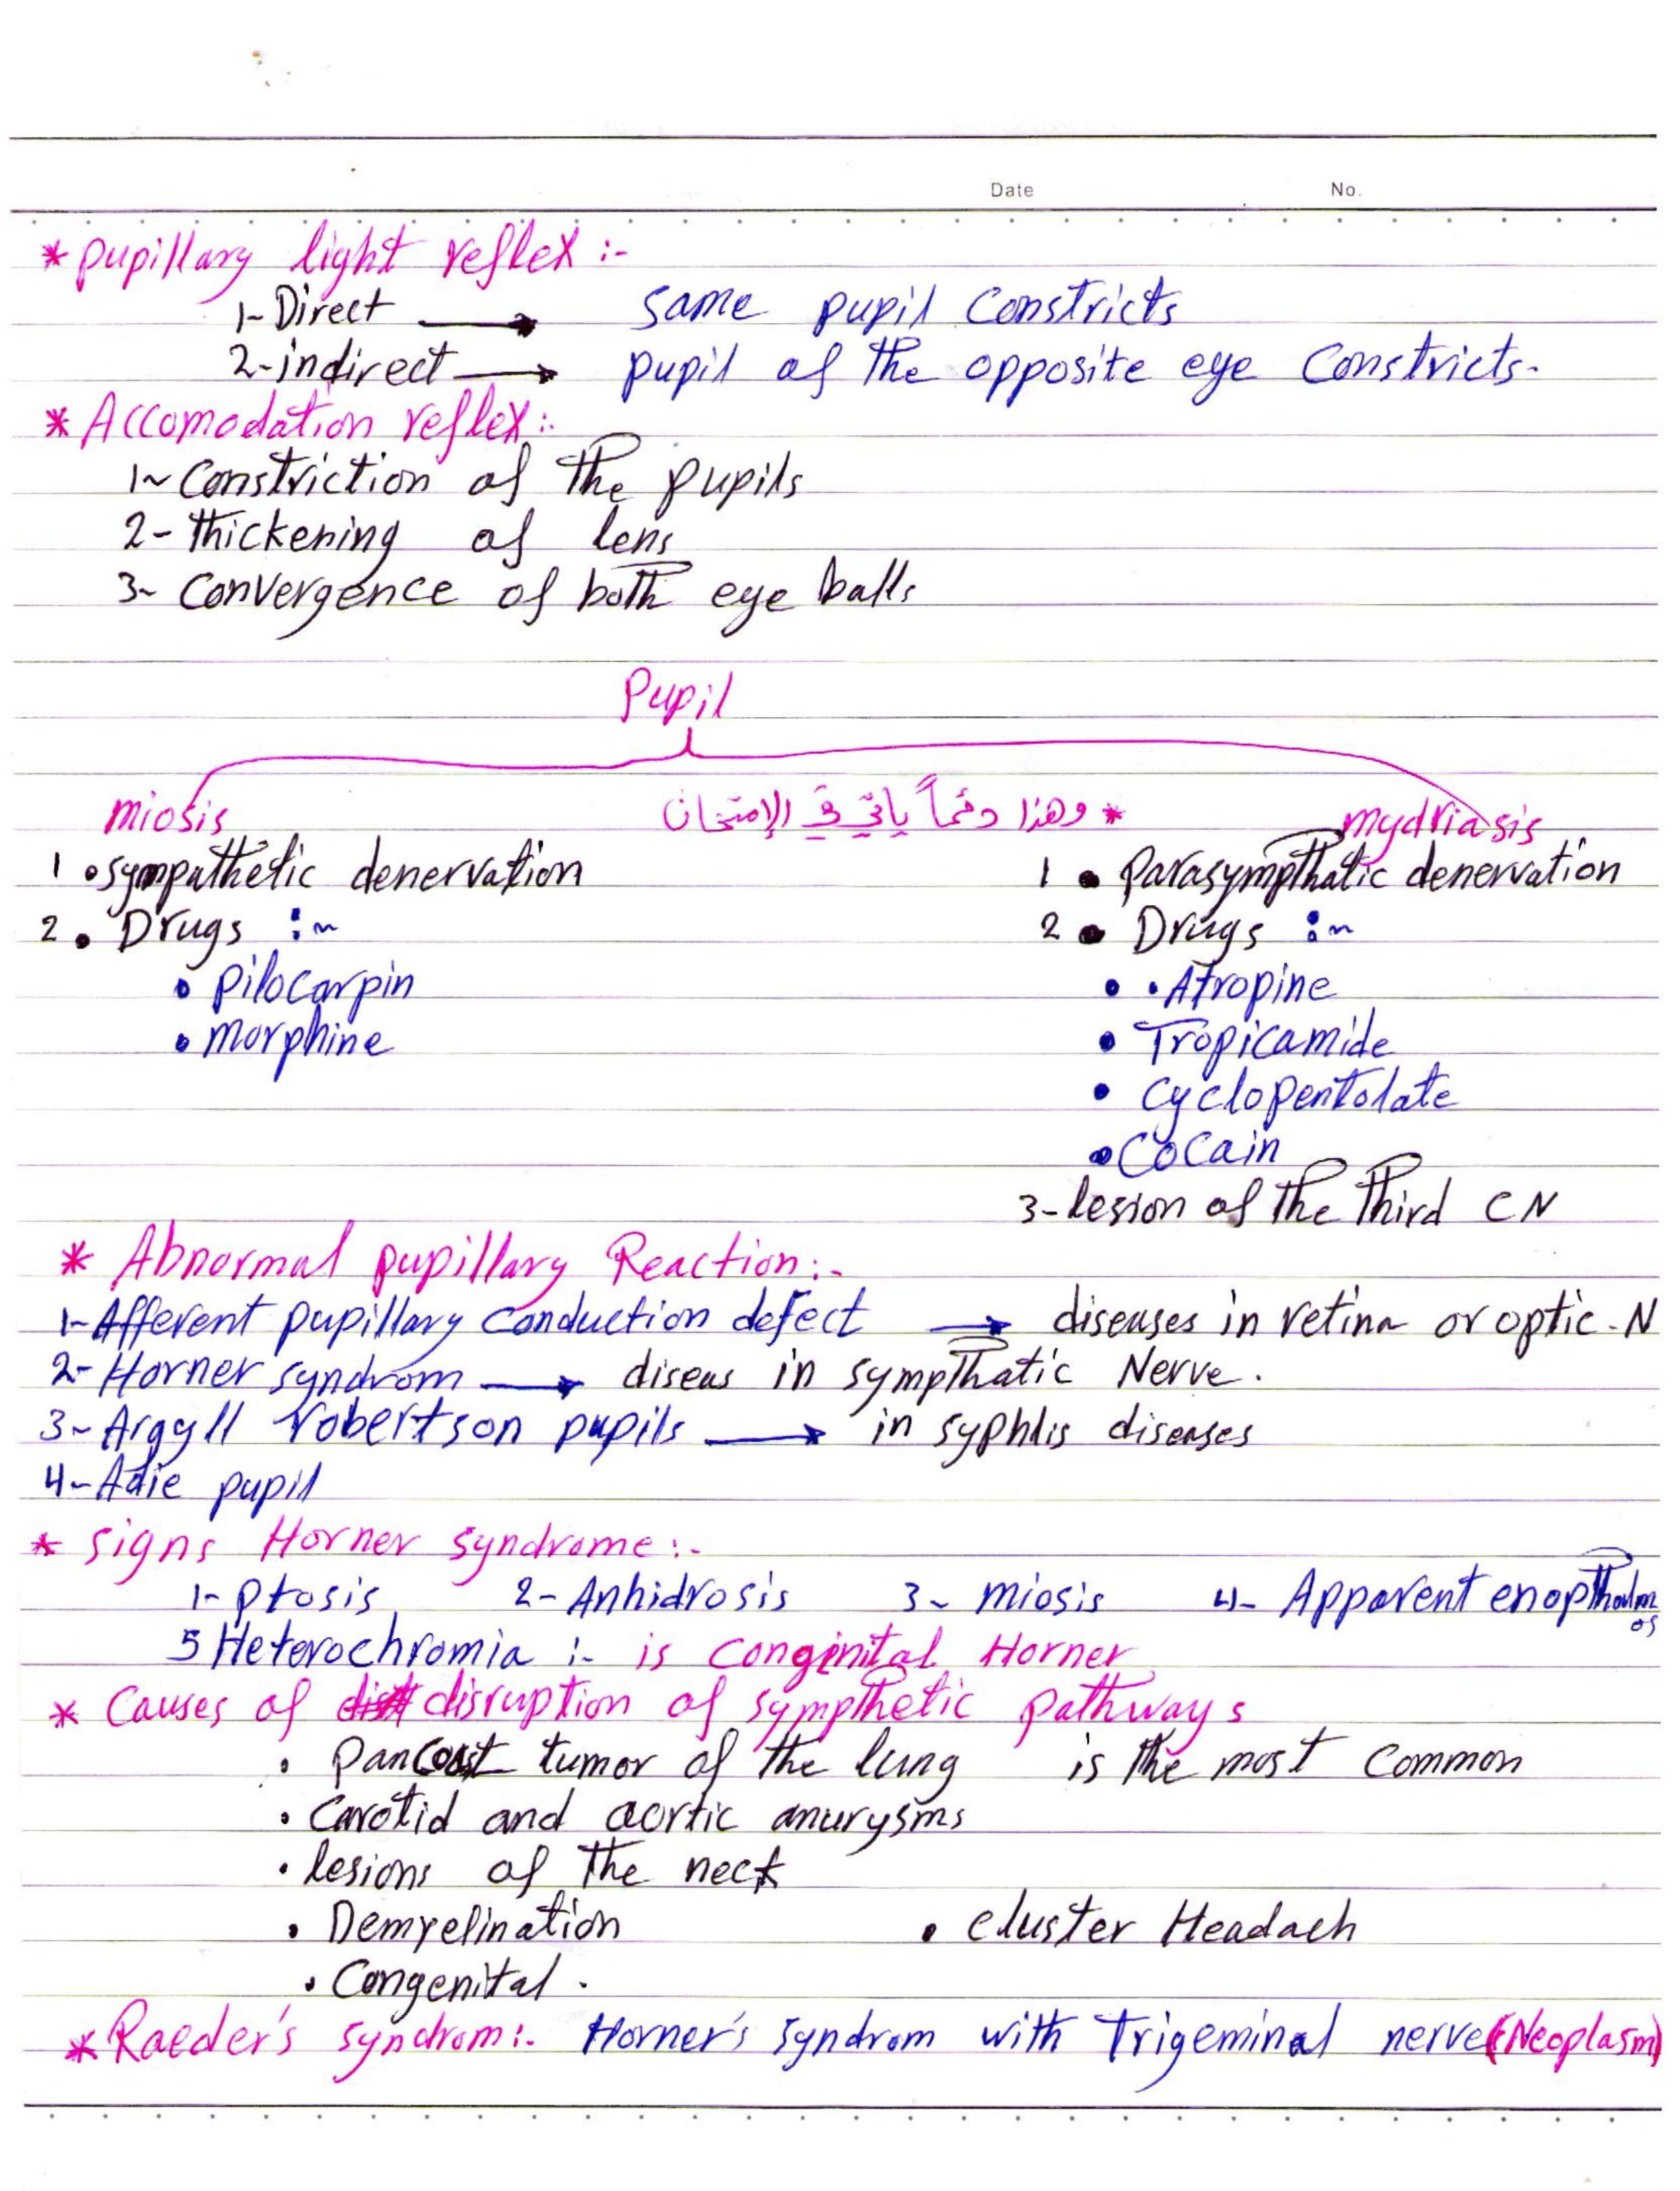 Date No.
* pupillary light reflex :-
1- Direct → same pupil Constricts
2- indirect → pupil of the opposite eye Constricts.
* Accomodation reflex :-
1~ Constriction of the pupils
2- thickening of lens
3~ Convergence of both eye balls
Pupil
miosis
* وهذا دئماً يأتي في الإمتحان
mydriasis
1 • sympathetic denervation
2 • Drugs :~
• pilocarpin
• morphine
1 • parasympthatic denervation
2 • Drugs :~
• • Atropine
• Tropicamide
• cyclopentolate
• Cocain
3- lesion of the third CN
* Abnormal pupillary Reaction :-
1- Afferent pupillary conduction defect → diseases in retina or optic-N
2- Horner syndrom → diseus in sympthatic Nerve.
3~ Argyll robertson pupils → in syphlis diseases
4~ Adie pupil
* signs Horner syndrome :-
1- ptosis 2- Anhidrosis 3~ miosis 4- Apparent enopthalmos
5 Heterochromia :- is conginital Horner
* Causes of disruption of sympthetic pathways
• pancoast tumor of the lung is the most common
• Carotid and aortic anurysms
• lesions of the neck
• Demyelination • cluster Headach
• Congenital .
* Raeder's syndrom :- Horner's syndrom with Trigeminal nerve (Neoplasm)